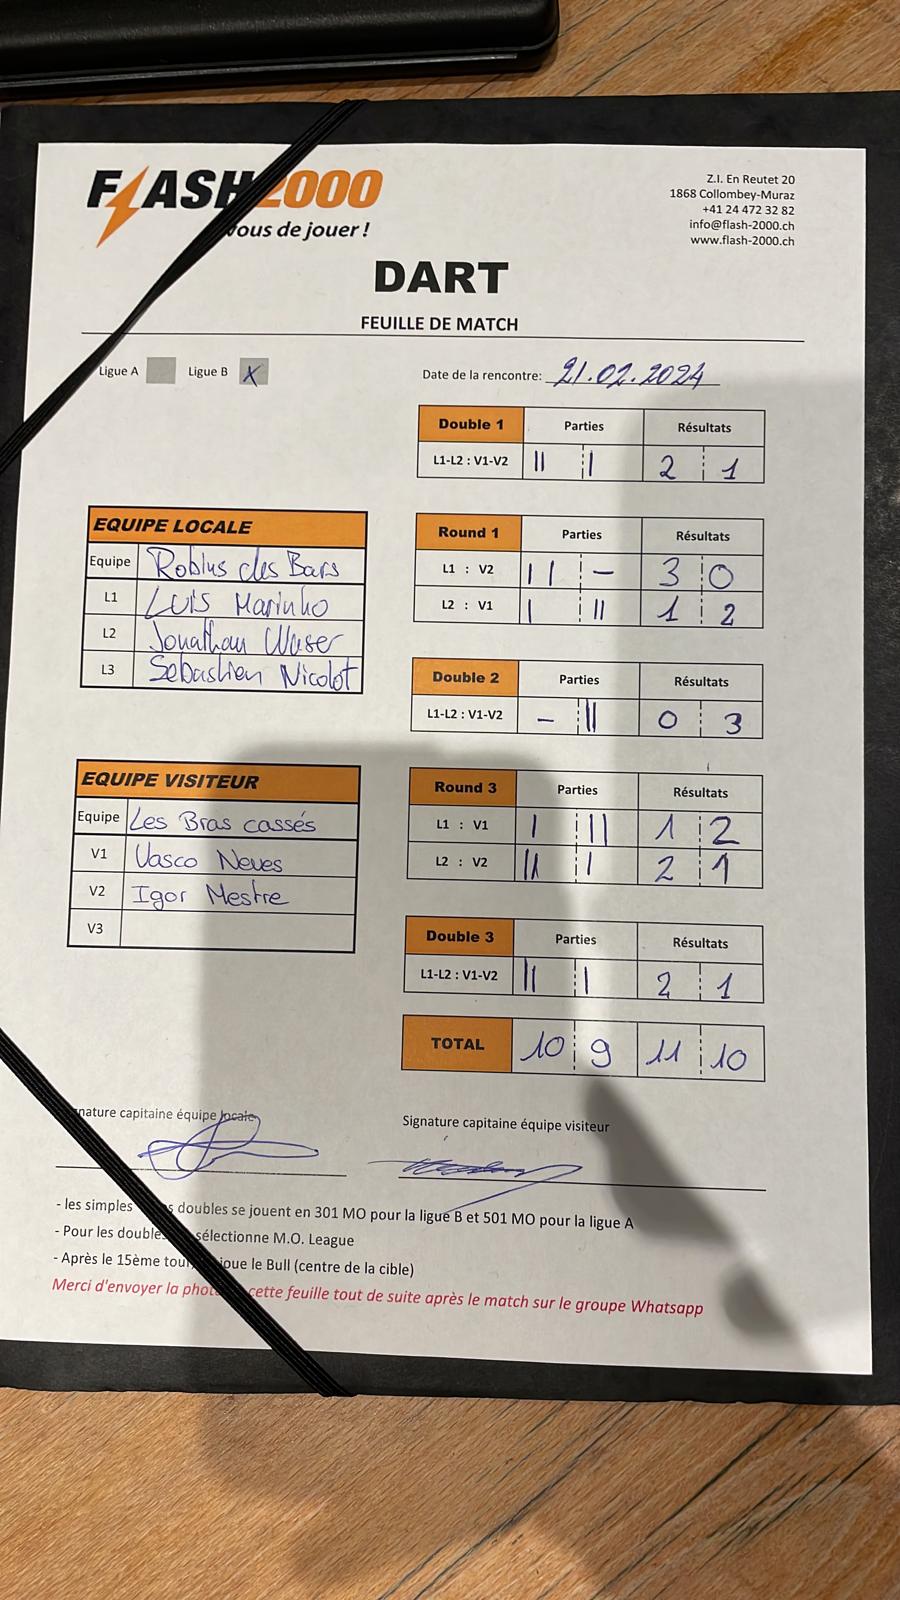 FLASH 2000
vous de jouer !
Z.I. En Reutet 20
1868 Collombey-Muraz
+41 24 472 32 82
info@flash-2000.ch
www.flash-2000.ch
DART
FEUILLE DE MATCH
Ligue A Ligue B X
Date de la rencontre: 21.02.2024
Double 1 Parties Résultats
L1-L2 : V1-V2 || | 2 1
EQUIPE LOCALE
Equipe Robins des Bars
L1 Luis Marinho
L2 Jonathan Waser
L3 Sébastien Nicolot
Round 1 Parties Résultats
L1 : V2 || - 3 0
L2 : V1 | || 1 2
Double 2 Parties Résultats
L1-L2 : V1-V2 - || 0 3
EQUIPE VISITEUR
Equipe Les Bras cassés
V1 Vasco Neves
V2 Igor Mestre
V3
Round 3 Parties Résultats
L1 : V1 | || 1 2
L2 : V2 || | 2 1
Double 3 Parties Résultats
L1-L2 : V1-V2 || | 2 1
TOTAL 10 9 11 10
nature capitaine équipe locale
Signature capitaine équipe visiteur
- les simples doubles se jouent en 301 MO pour la ligue B et 501 MO pour la ligue A
- Pour les doubles sélectionne M.O. League
- Après le 15ème tour, joue le Bull (centre de la cible)
Merci d'envoyer la photo cette feuille tout de suite après le match sur le groupe Whatsapp